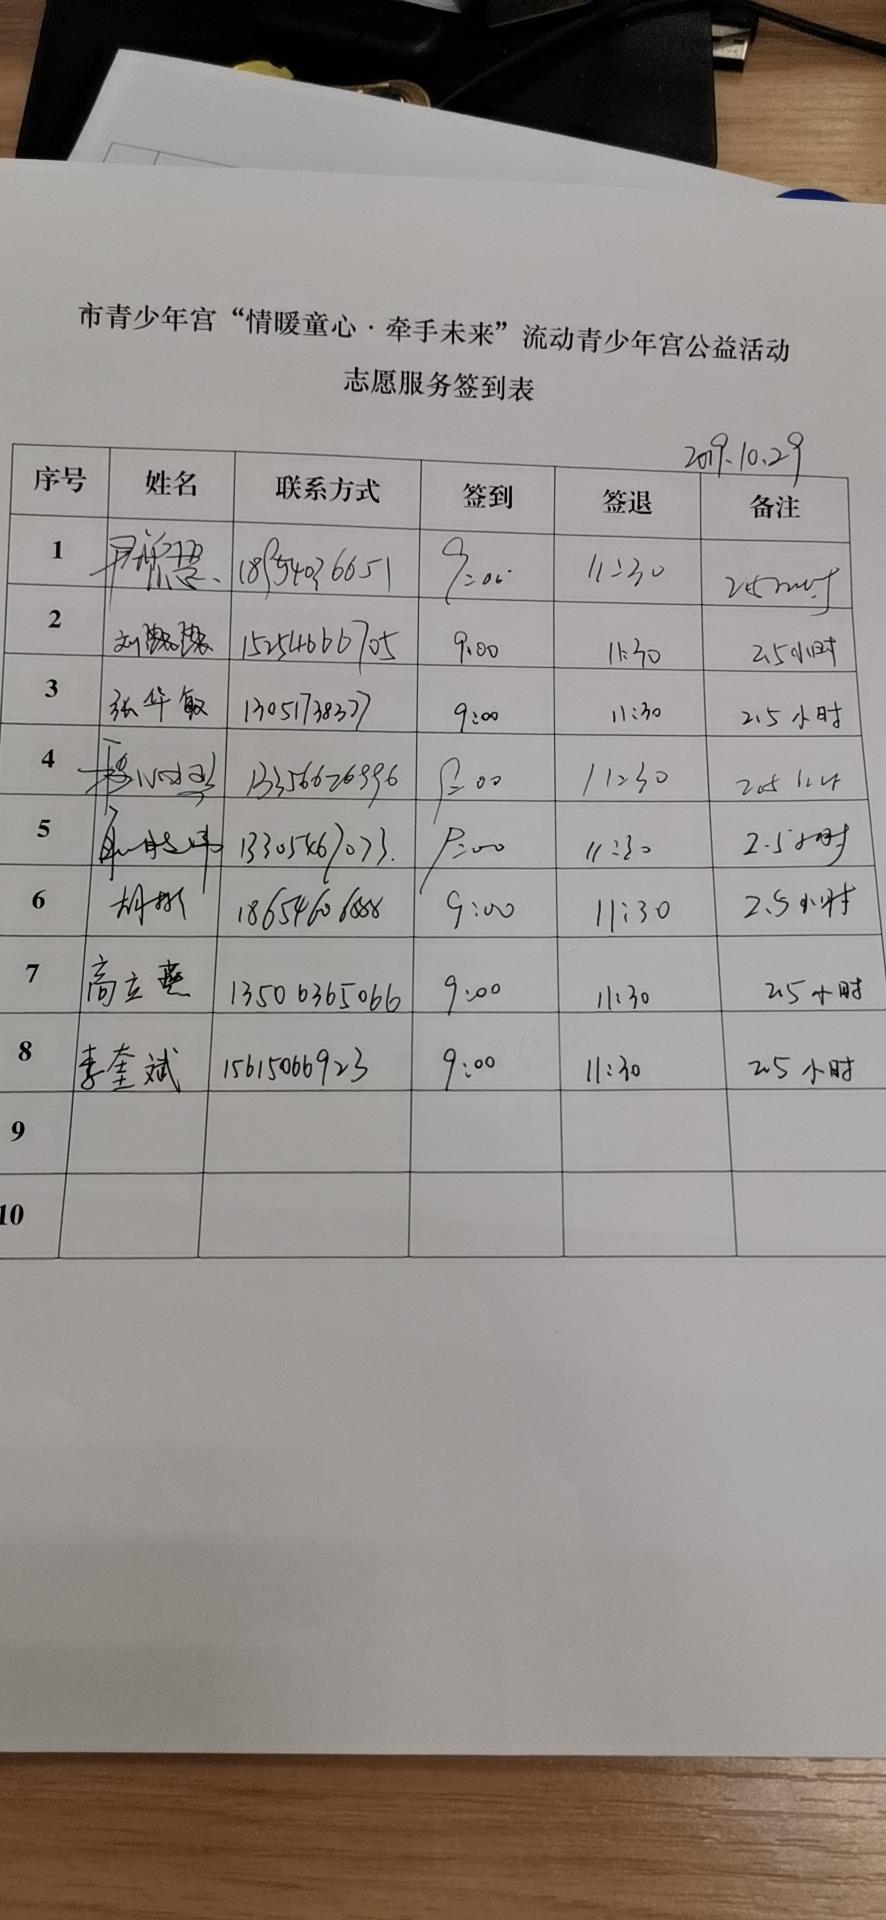 市青少年宫“情暖童心·牵手未来”流动青少年宫公益活动
志愿服务签到表
2019.10.29
序号 姓名 联系方式 签到 签退 备注
1 11:30
2 刘 15254666705 9:00 11:30 2.5小时
3 张华敏 13051738377 9:00 11:30 2.5小时
4 13356626996 9:00 11:30
5 13305467073 9:00 11:30 2.5小时
6 胡 9:00 11:30 2.5小时
7 高立 13506365066 9:00 11:30 2.5小时
8 李奎斌 15615066923 9:00 11:30 2.5小时
9
10